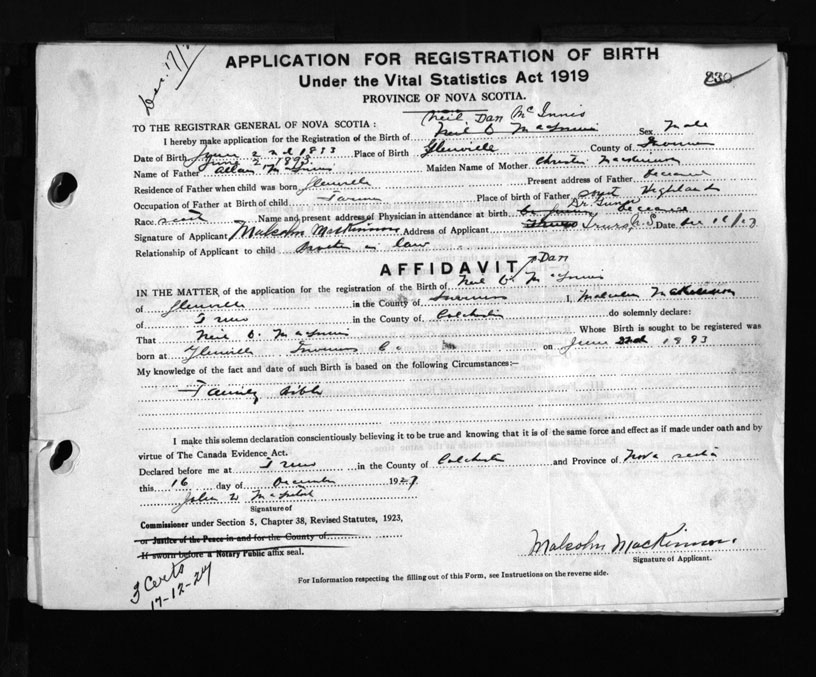 Dec. 17/
APPLICATION FOR REGISTRATION OF BIRTH
Under the Vital Statistics Act 1919
830
PROVINCE OF NOVA SCOTIA.
Neil Dan McInnis
TO THE REGISTRAR GENERAL OF NOVA SCOTIA :
I hereby make application for the Registration of the Birth of Neil D. McInnis Sex Male
Date of Birth June 2nd 1893 Place of Birth Glenville County of Inverness
June 2 1893
Name of Father Allan McInnis Maiden Name of Mother Christie MacKinnon
Residence of Father when child was born Glenville Present address of Father deceased
Occupation of Father at Birth of child Farmer Place of birth of Father Highlands
Race Name and present address of Physician in attendance at birth Dr. deceased
Signature of Applicant Malcolm MacKinnon Address of Applicant Truro N.S Date Dec 16/27
Relationship of Applicant to child Brother in law
AFFIDAVIT
Dan
IN THE MATTER of the application for the registration of the Birth of Neil D. McInnis
of Glenville in the County of Inverness I, Malcolm MacKinnon
of Truro in the County of Colchester do solemnly declare:
That Neil D. McInnis Whose Birth is sought to be registered was
born at Glenville Inverness Co. on June 2nd 1893
My knowledge of the fact and date of such Birth is based on the following Circumstances:—
Family Bible
I make this solemn declaration conscientiously believing it to be true and knowing that it is of the same force and effect as if made under oath and by
virtue of The Canada Evidence Act.
Declared before me at Truro in the County of Colchester and Province of Nova Scotia
this 16 day of December 1927
John D.
Signature of
Commissioner under Section 5, Chapter 38, Revised Statutes, 1923,
or Justice of the Peace in and for the County of
If sworn before a Notary Public affix seal.
Malcolm MacKinnon.
Signature of Applicant.
3 Certs
17-12-27
For Information respecting the filling out of this Form, see Instructions on the reverse side.